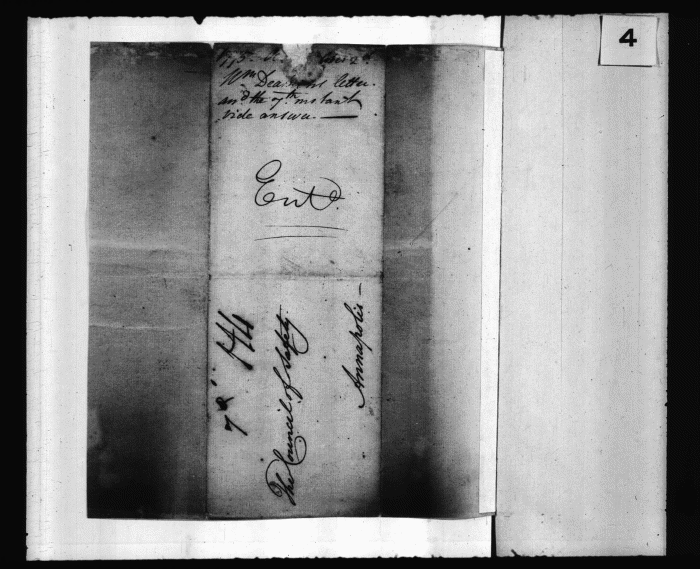 4
Wm Deakins letter.
and the 7th instant
vide answer. —
Entd.
The Council of Safety
Annapolis —